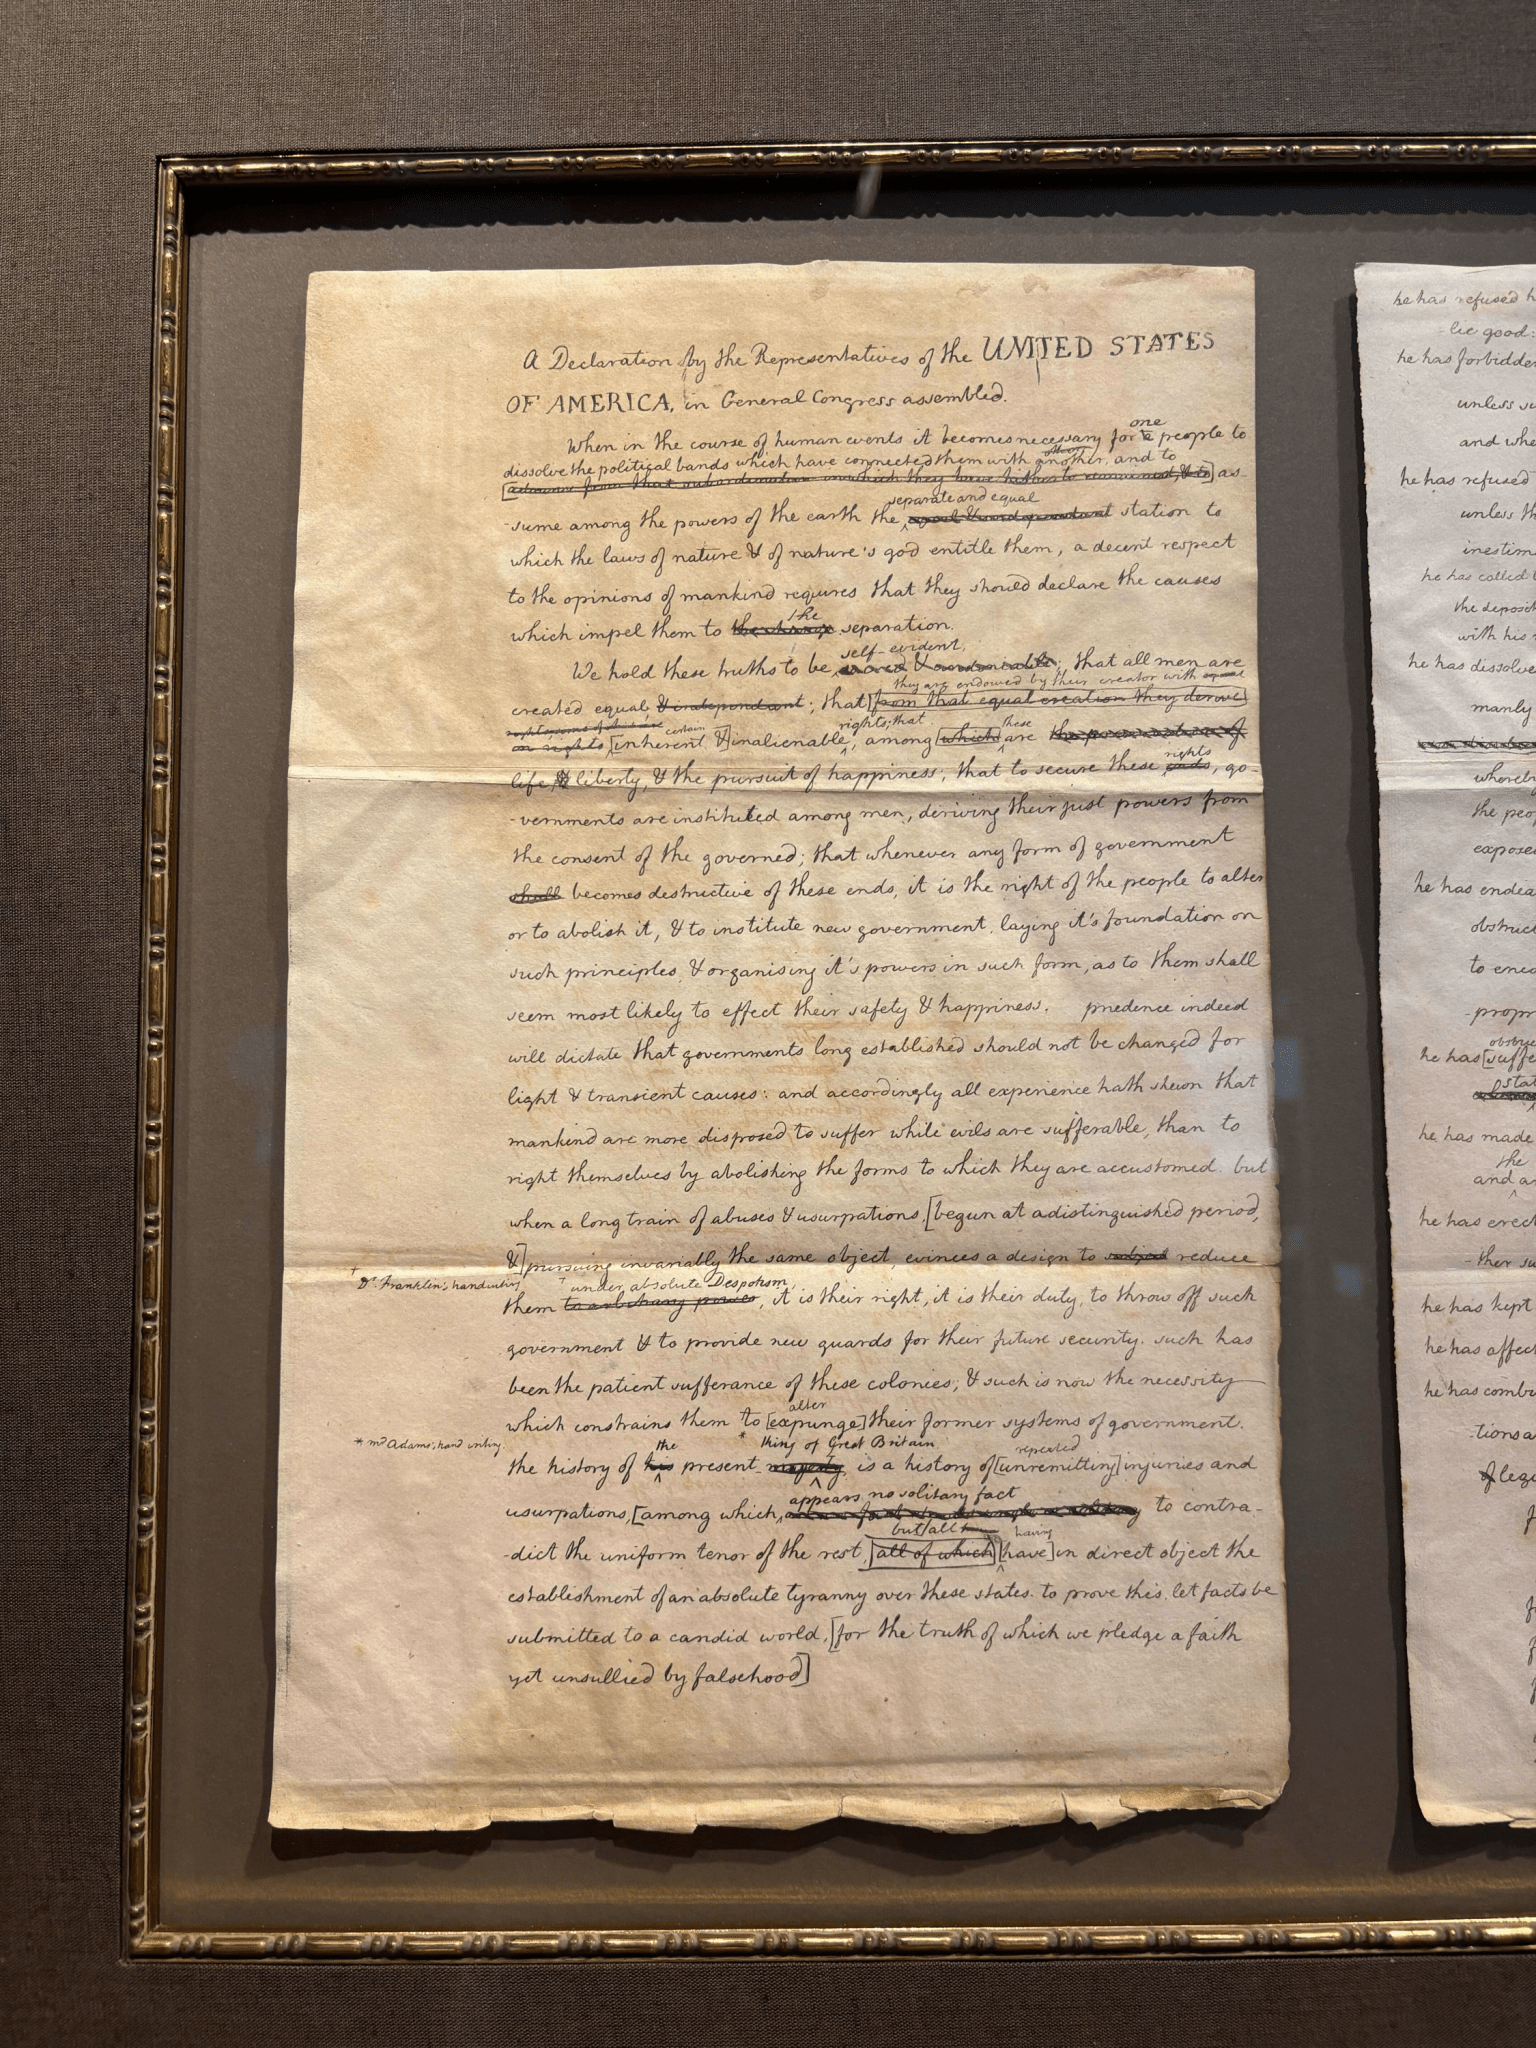 A Declaration by the Representatives of the UNITED STATES
OF AMERICA, in General Congress assembled.
one
When in the course of human events it becomes necessary for a people to
dissolve the political bands which have connected them with another, and to
[advance from that subordination in which they have hitherto remained, & to] as-
separate and equal
-sume among the powers of the earth the equal & independant station to
which the laws of nature & of nature's god entitle them, a decent respect
to the opinions of mankind requires that they should declare the causes
the
which impel them to the change separation.
self-evident,
We hold these truths to be sacred & undeniable; that all men are
they are endowed by their creator with equal
created equal & independant; that [from that equal creation they derive]
rights, some of which are certain rights; that these
in rights [inherent &] inalienable, among [which] are the preservation of
rights
life, & liberty, & the pursuit of happiness; that to secure these ends, go-
-vernments are instituted among men, deriving their just powers from
the consent of the governed; that whenever any form of government
shall becomes destructive of these ends, it is the right of the people to alter
or to abolish it, & to institute new government, laying it's foundation on
such principles & organising it's powers in such form, as to them shall
seem most likely to effect their safety & happiness. prudence indeed
will dictate that governments long established should not be changed for
light & transient causes: and accordingly all experience hath shewn that
mankind are more disposed to suffer while evils are sufferable, than to
right themselves by abolishing the forms to which they are accustomed. but
when a long train of abuses & usurpations, [begun at a distinguished period,
&] pursuing invariably the same object, evinces a design to subject reduce
† Dr. Franklin's handwriting † under absolute Despotism,
them to arbitrary power, it is their right, it is their duty, to throw off such
government & to provide new guards for their future security. such has
been the patient sufferance of these colonies; & such is now the necessity
alter
which constrains them to [expunge] their former systems of government.
* mr Adams' hand writing the * king of Great Britain repeated
the history of his present majesty, is a history of [unremitting] injuries and
appears no solitary fact
usurpations, [among which, to contra-
but all having
-dict the uniform tenor of the rest, [all of which] [have] in direct object the
establishment of an absolute tyranny over these states. to prove this, let facts be
submitted to a candid world, [for the truth of which we pledge a faith
yet unsullied by falsehood]
he has refused h
lic good:
he has forbidden
unless su
and whe
he has refused
unless th
inestim
he has called t
the deposit
with his m
he has dissolve
manly
whereby
the peop
expose
he has endea
obstruct
to enco
-propr
he has [suffe
stat
he has made
the
and a
he has erect
-ther su
he has kept
he has affect
he has combi
-tions a